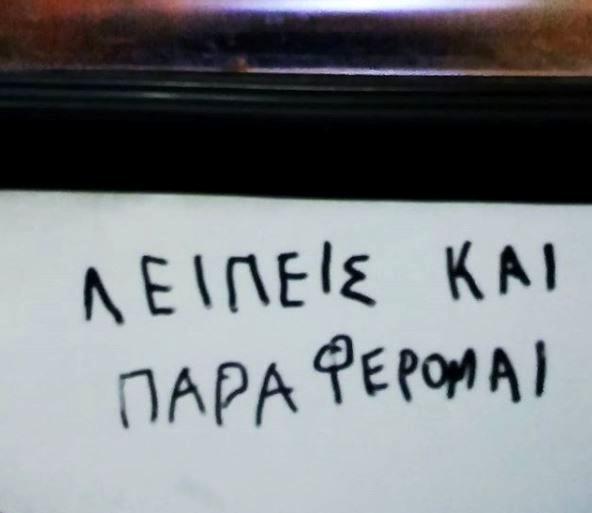 ΛΕΙΠΕΙΣ ΚΑΙ
ΠΑΡΑΦΕΡΟΜΑΙ